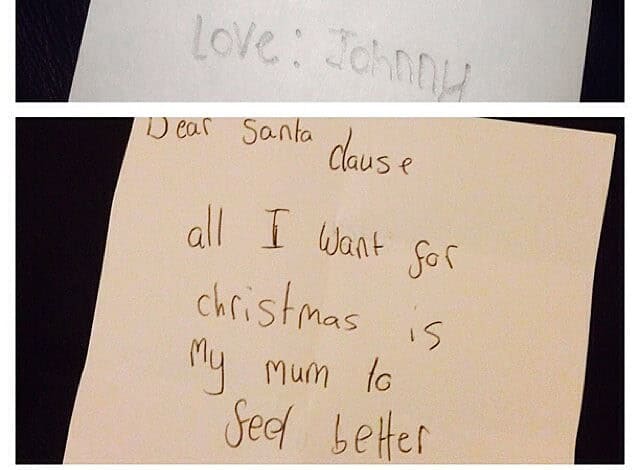 Love: Johnny
Dear Santa
clause
all I want for
christmas is
My mum to
feel better